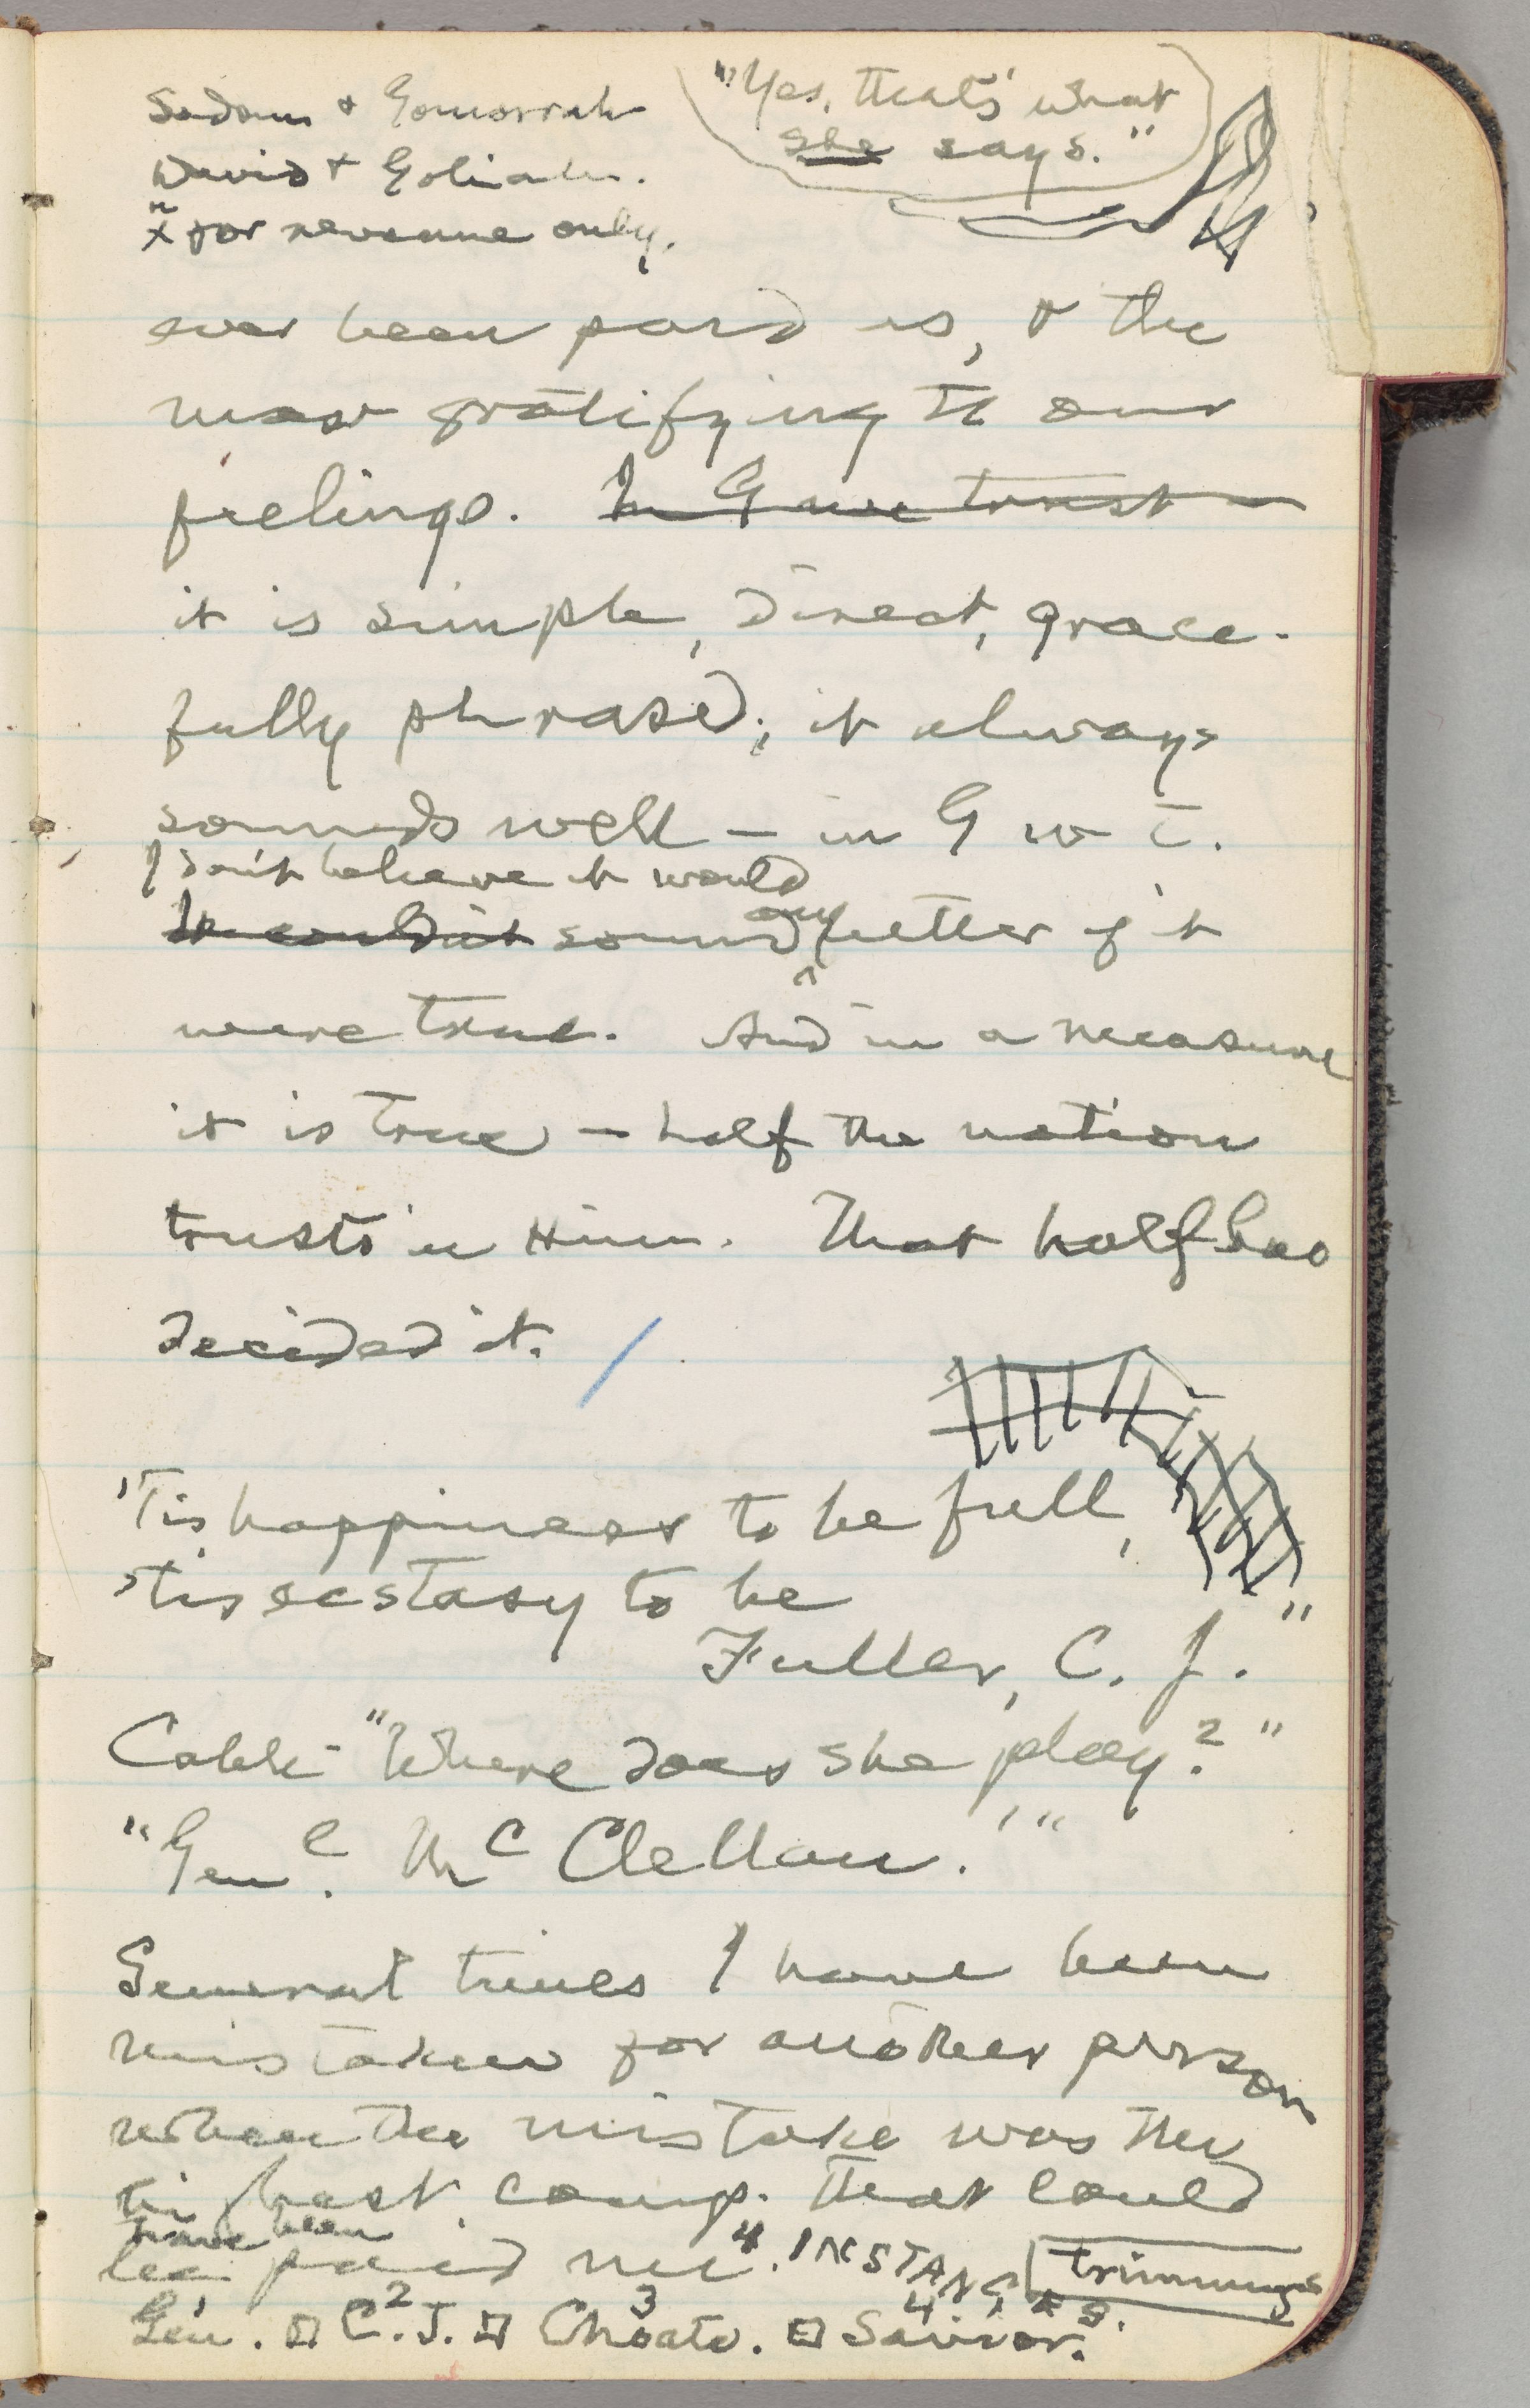 Sodom & Gomorrah
David & Goliah.
x for revenue only.
"Yes, that's what
she says."
ever been paid us, & the
most gratifying to our
feelings. In G we trust —
it is simple, direct, grace-
fully phrased; it always
sounds well — in G w t.
I don't believe it would
It couldn't sound any better if it
were true. And in a measure
it is true — half the nation
trusts in Him. That half has
decided it.
'Tis happiness to be full,
'tis ecstasy to be
Fuller, C. J."
Cable "Where does she play?"
"Genl. McClellan."
Several times I have been
mistaken for another person
when the mistake was the
hi best comp. that could
have been
be paid me. 4 INSTANCES.
trimmings
Gen. C.2 J. Choate.3 Savior.4